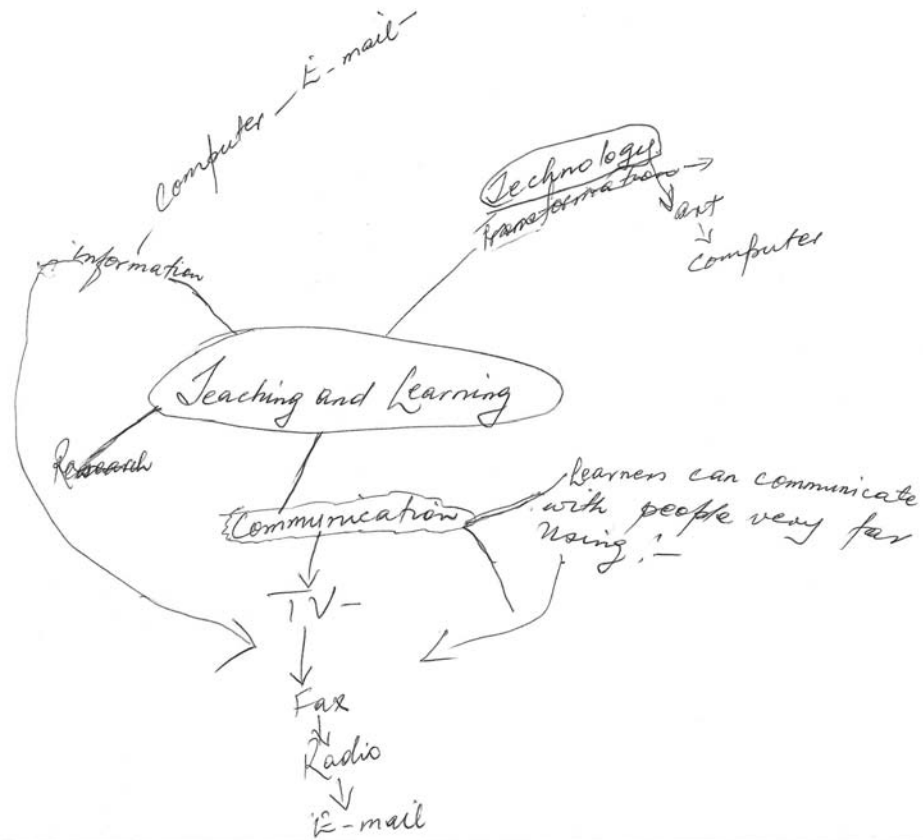 Computer - E-mail-
Technology
Transformation →
art
Computer
Information
Teaching and Learning
Research
Communication
Learners can communicate
with people very far
Using :-
TV-
Fax
Radio
E-mail